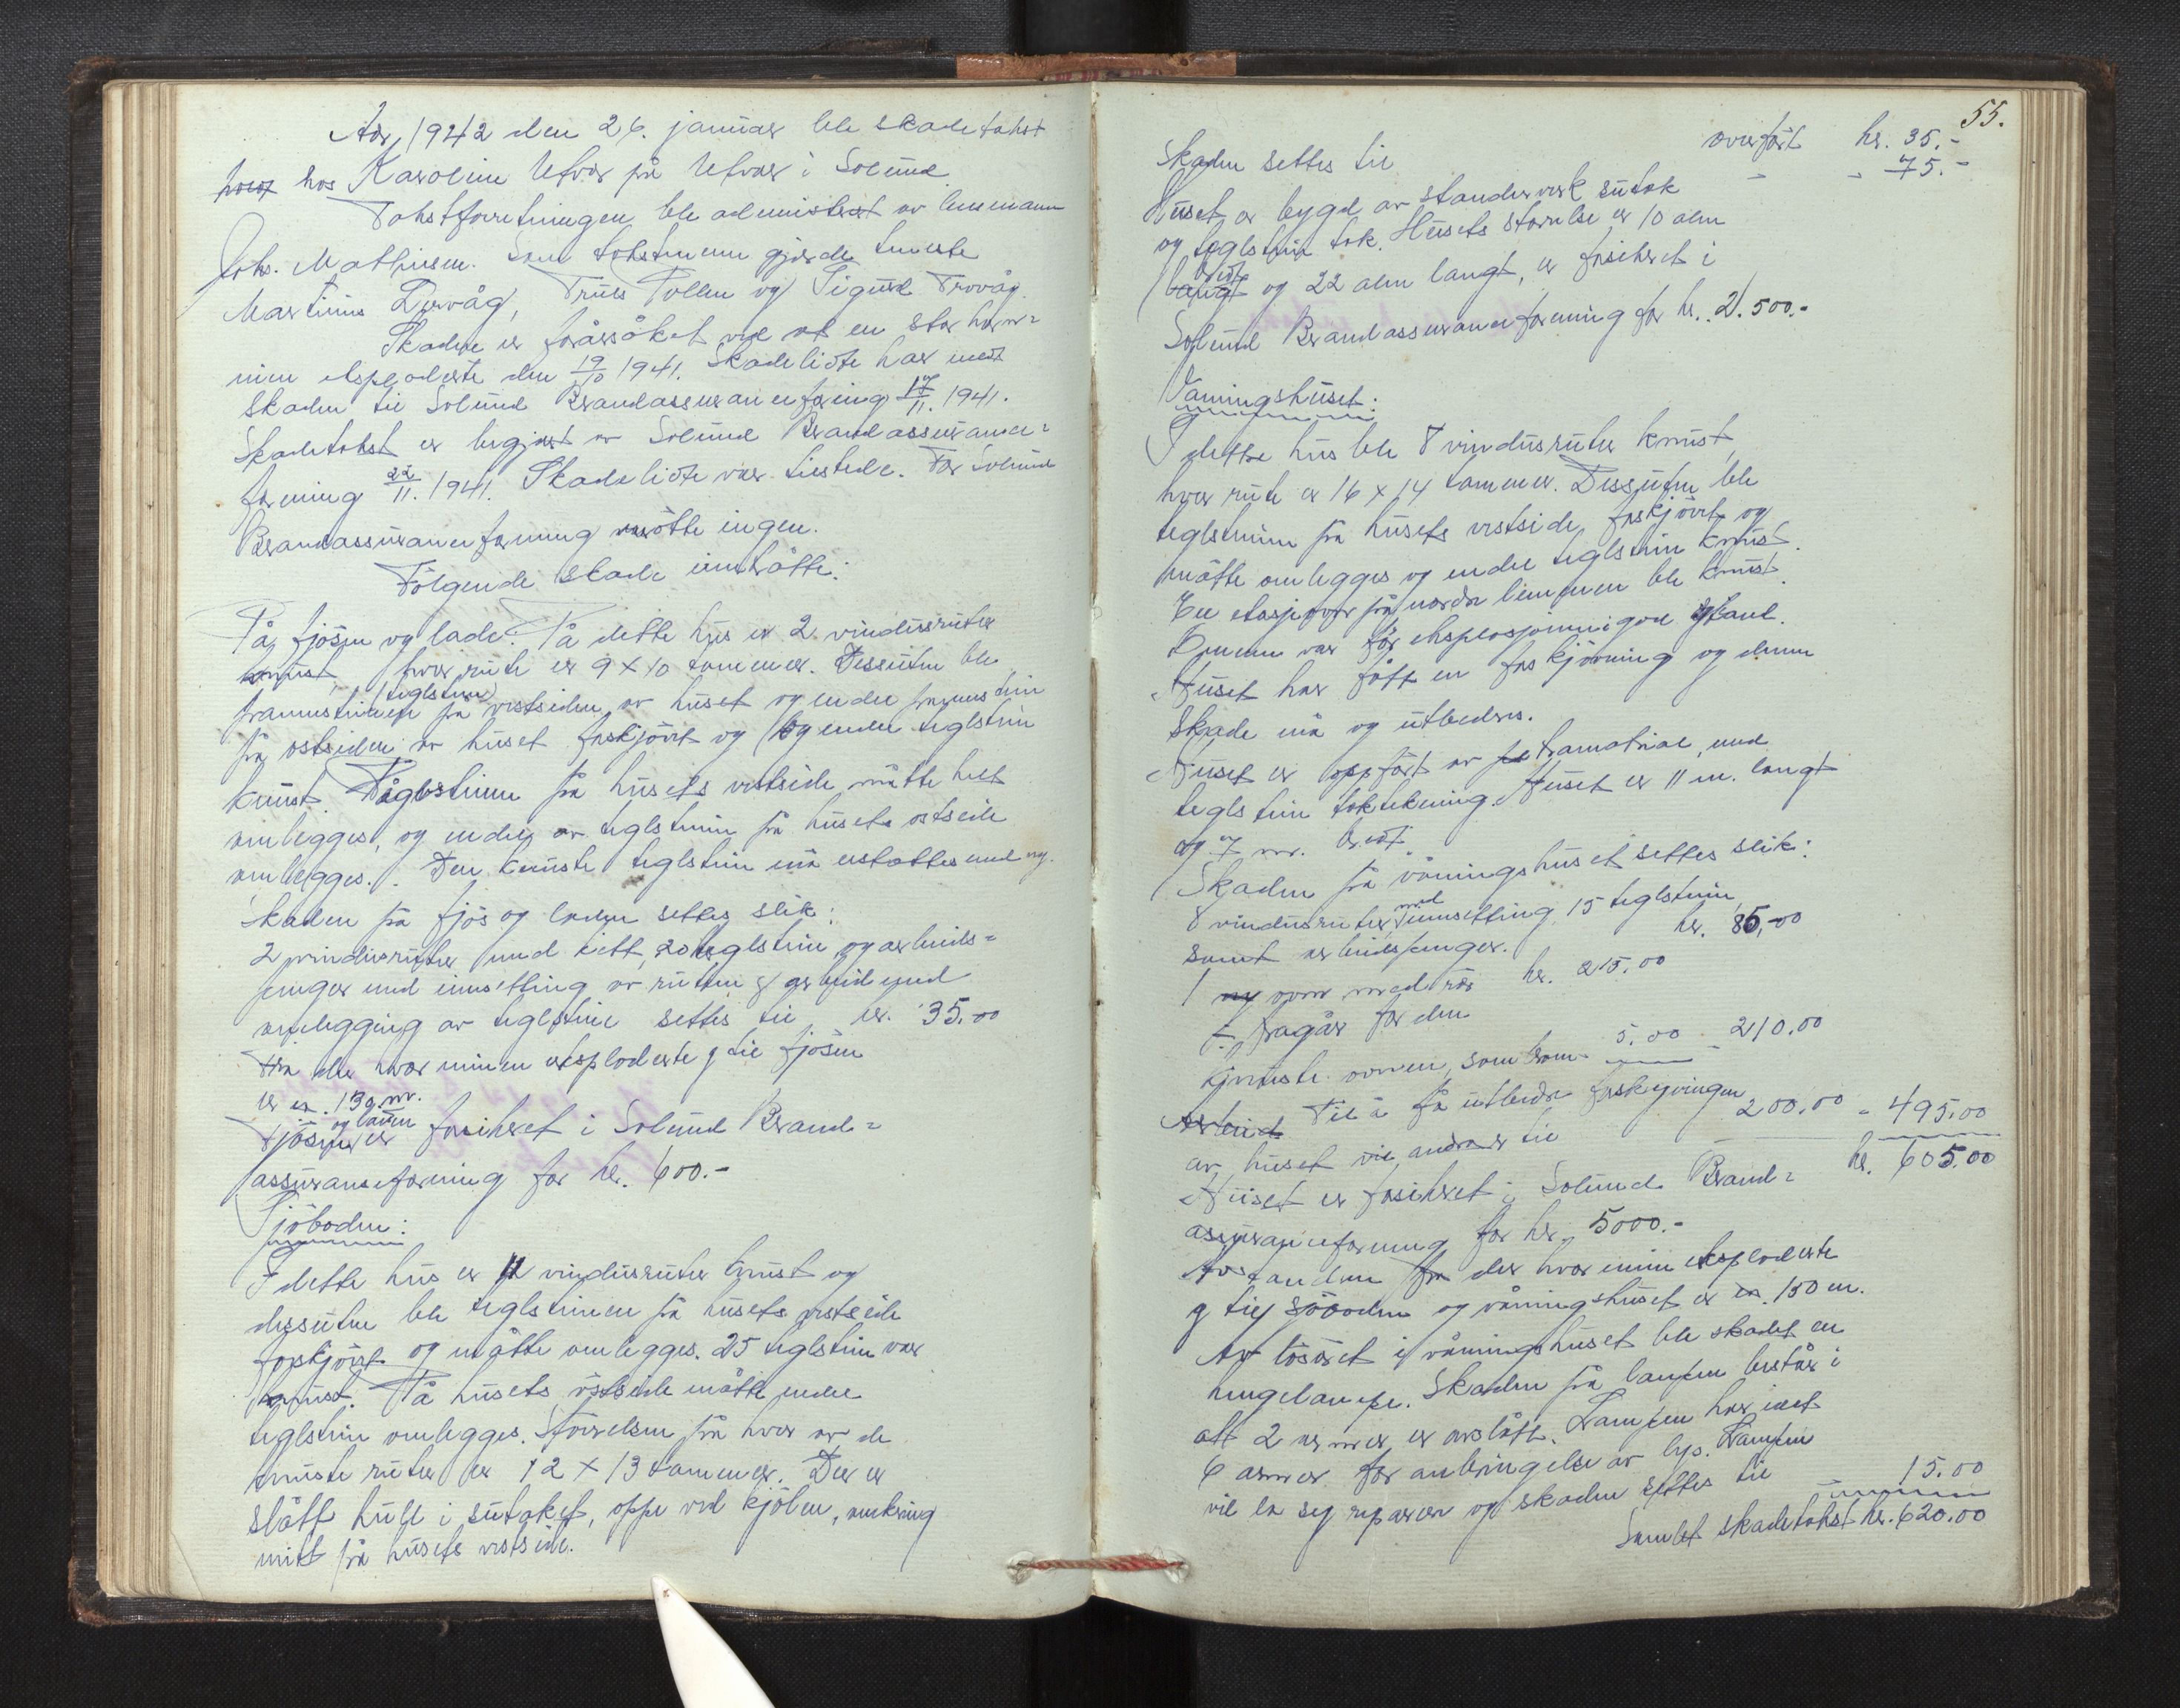 År 1942 den 26. januar ble skadetakst
hos Karoline Utvær på Utvær i Solund.
Takstforretningen ble administrert av lensmann
Johs. Mathisen. Som takstmenn gjorde tjeneste
Martinus Dørvåg, Truls Pollen og Sigurd Trovåg.
Skaden er forårsaket ved at en stor horn-
mine eksploderte den 19/10 1941. Skadelidte har meldt
skaden til Solund Brandassuranseforening 17/11. 1941.
Skadetakst er begjært av Solund Brandassuranse-
forening 22/11. 1941. Skadelidte var tilstede. For Solund
Brandassuranseforening møtte ingen.
Følgende skade inntråtte:
På fjøsen og lade. På dette hus er 2 vindusruter
knust, hver rute er 9 X 10 tommer. Dessuten ble
(teglstein)
pannesteinen på vestsiden av huset og endel pannestein
på ostsiden av huset forskjøvet og endel teglstein
knust. Teglsteinen på husets vestside måtte helt
omlegges, og endel av teglstein på husets ostside
omlegges. Den knuste teglstein må erstattes med ny.
Skaden på fjøs og laden settes slik:
2 vindusruter med kitt, 20 teglstein og arbeids-
penger med innsetting av ruten & arbeid med
omlegging av teglstein settes til kr. 35.00
Fra der hvor minen eksploderte g til fjøsen
er ca. 130 m.
og laden
Fjøsen er forsikret i Solund Brand-
assuranseforening for kr. 600.-
Sjøboden:
I dette hus er 11 vindusruter knust og
dessuten ble teglsteinen på husets vestside
forskjøvet og måtte omlegges. 25 teglstein var
knust. På husets østside måtte endel
teglstein omlegges. Størrelsen på hver av de
knuste ruter er 12 X 13 tommer. Der er
slått hull i sutaket, oppe ved kjølen, omkring
midt på husets vestside.
55.
overført kr. 35.-
Skaden settes til - - 75.-
Huset er bygd av standerverk sutak
og teglstein tak. Husets størrelse er 10 alen
bredt
langt og 22 alen langt, er forsikret i
Solund Brandassuranseforening for kr. 2.500.-
Våningshuset:
I dette hus ble 8 vindusruter knust,
hver rute er 16 X 14 tommer. Dessuten ble
teglsteinen på husets vestside forskjøvet og
måtte omlegges og endel teglstein knust.
En etasjeovn på nordre lemmen ble knust.
Ovnen var før eksplosjonen i god stand.
Huset har fått en forskjøvning og denne
skade må og utbedres.
Huset er oppført av tramatrial, med
teglstein taktekning. Huset er 11 m. langt
og 7 m. bredt.
Skaden på våningshuset settes slik:
8 vindusruter, med innsetting, 15 teglstein,
samt arbeidspenger. kr. 85,00
1 ny ovn med rør kr. 215.00
÷ fragår for den
knuste ovnen, som brom- 5.00 - 210.00
Arbeid Til å få utbedre forskyvningen
av huset vil andra er til 200.00 - 495.00
kr. 605.00
Huset er forsikret i Solund Brand-
assuranseforening for kr. 5000.-
Avstanden fra der hvor minen eksploderte
g til sjøboden og våningshuset er ca. 150 m.
Av løsøret i våningshuset ble skadet en
hengelampe. Skaden på lampen består i
att 2 armer er avslått. Lampen har iallt
6 armer for anbringelse av lys. Lampen
vil la seg reparere og skaden settes til - 15.00
Samlet skadetakst kr. 620.00